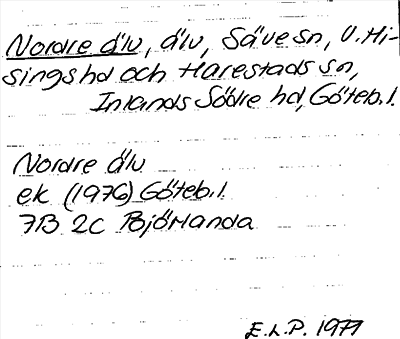 Nordre älv, älv, Säve sn, V. Hi-
sings hd och Harestads sn,
Inlands Södre hd, Göteb. l.
Nordre älv
ek (1976) Göteb. l.
7B 2c Björlanda
E.L.P. 1977